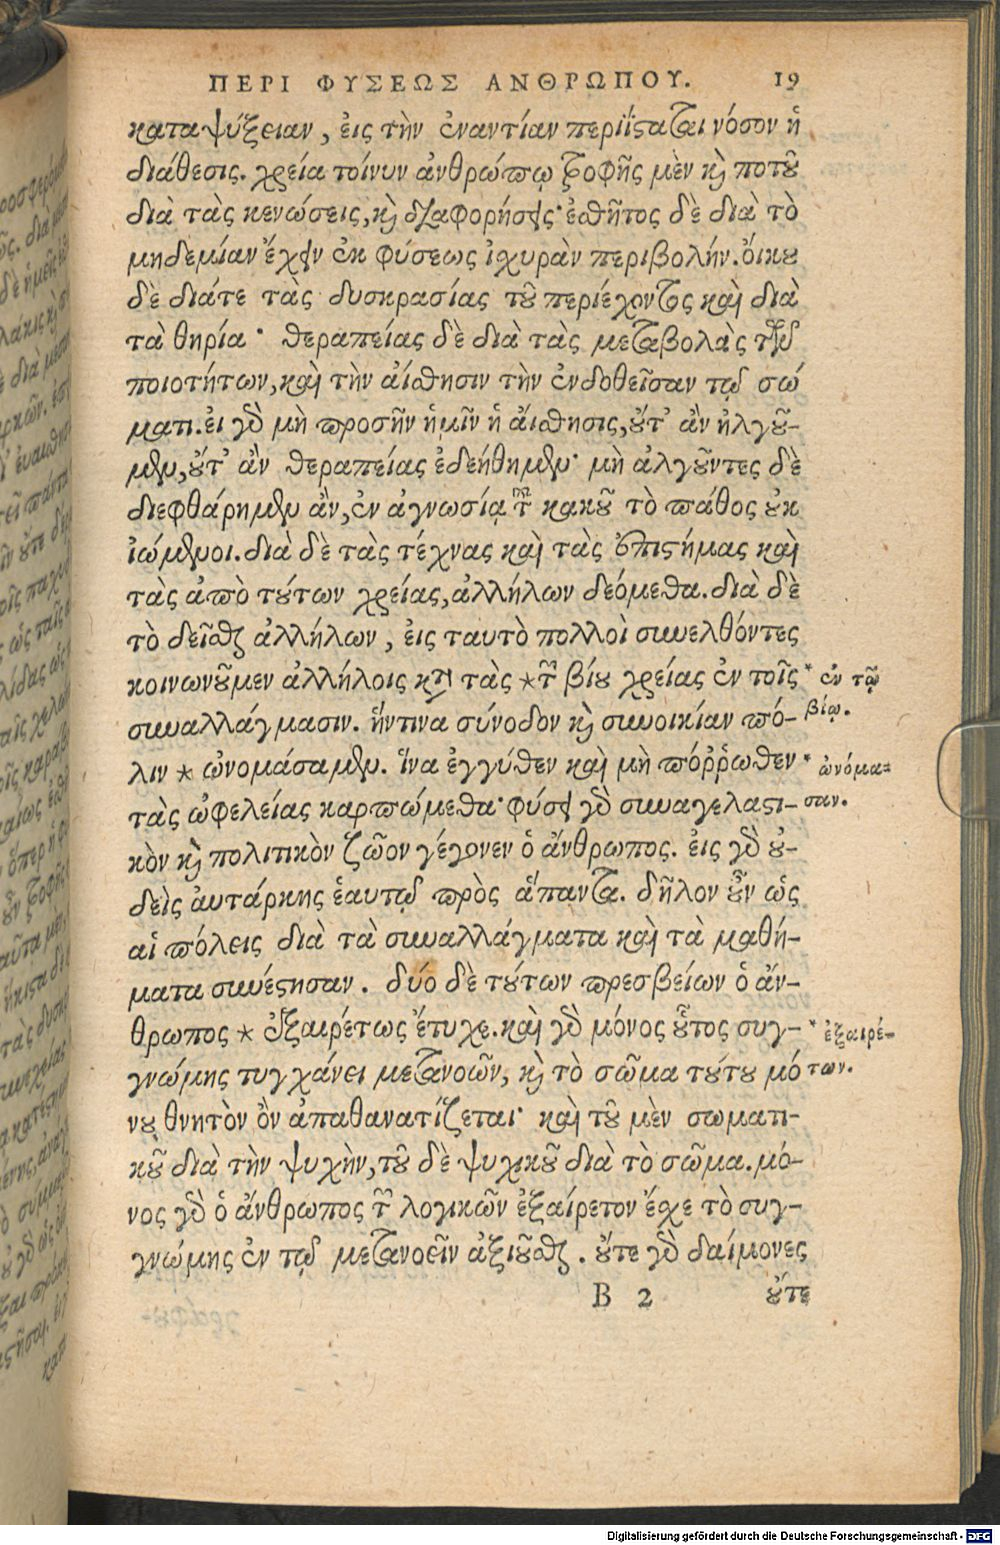 ΠΕΡΙ ΦΥΣΕΩΣ ΑΝΘΡΩΠΟΥ. 19
καταψύξειαν, εἰς τὴν ἐναντίαν περιΐσταται νόσον ἡ
διάθεσις. χρεία τοίνυν ἀνθρώπῳ τροφῆς μὲν καὶ ποτοῦ
διὰ τὰς κενώσεις, καὶ διαφορήσεις· ἐσθῆτος δὲ διὰ τὸ
μηδεμίαν ἔχειν ἐκ φύσεως ἰχυρὰν περιβολήν. οἴκου
δὲ διάτε τὰς δυσκρασίας τοῦ περιέχοντος καὶ διὰ
τὰ θηρία· θεραπείας δὲ διὰ τὰς μεταβολὰς τῶν
ποιοτήτων, καὶ τὴν αἴσθησιν τὴν ἐνδοθεῖσαν τῷ σώ
ματι. εἰ γὰρ μὴ προσῆν ἡμῖν ἡ αἴσθησις, οὔτ' ἂν ἠλγοῦ-
μεν, οὔτ' ἂν θεραπείας ἐδεήθημεν· μὴ ἀλγοῦντες δὲ
διεφθάρημεν ἂν, ἐν ἀγνωσίᾳ τοῦ κακοῦ τὸ πάθος οὐκ
ἰώμενοι. διὰ δὲ τὰς τέχνας καὶ τὰς ἐπιστήμας καὶ
τὰς ἀπὸ τούτων χρείας, ἀλλήλων δεόμεθα. διὰ δὲ
τὸ δεῖσθαι ἀλλήλων, εἰς ταυτὸ πολλοὶ συνελθόντες
κοινωνοῦμεν ἀλλήλοις κατὰ τὰς *τοῦ βίου χρείας ἐν τοῖς
* ἐν τῷ
βίῳ.
συναλλάγμασιν. ἥντινα σύνοδον καὶ συνοικίαν πό-
λιν * ὠνομάσαμεν. ἵνα ἐγγύθεν καὶ μὴ πόῤῥωθεν
* ὠνόμα-
σαν.
τὰς ὠφελείας καρπώμεθα· φύσει γὰρ συναγελαστι-
κὸν καὶ πολιτικὸν ζῶον γέγονεν ὁ ἄνθρωπος. εἰς γὰρ οὐ-
δεὶς αὐτάρκης ἑαυτῷ πρὸς ἅπαντα. δῆλον οὖν ὡς
αἱ πόλεις διὰ τὰ συναλλάγματα καὶ τὰ μαθή-
ματα συνέστησαν. δύο δὲ τούτων πρεσβείων ὁ ἄν-
θρωπος * ἐξαιρέτως ἔτυχε. καὶ γὰρ μόνος οὗτος συγ-
* ἐξαιρέ-
των.
γνώμης τυγχάνει μετανοῶν, καὶ τὸ σῶμα τούτου μό
νου θνητὸν ὂν ἀπαθανατίζεται· καὶ τοῦ μὲν σωματι-
κοῦ διὰ τὴν ψυχὴν, τοῦ δὲ ψυχικοῦ διὰ τὸ σῶμα. μό-
νος γὰρ ὁ ἄνθρωπος τῶν λογικῶν ἐξαίρετον ἔχε τὸ συγ-
γνώμης ἐν τῷ μετανοεῖν ἀξιοῦσθαι. οὔτε γὰρ δαίμονες
B 2 οὔτε
Digitalisierung gefördert durch die Deutsche Forschungsgemeinschaft - DFG